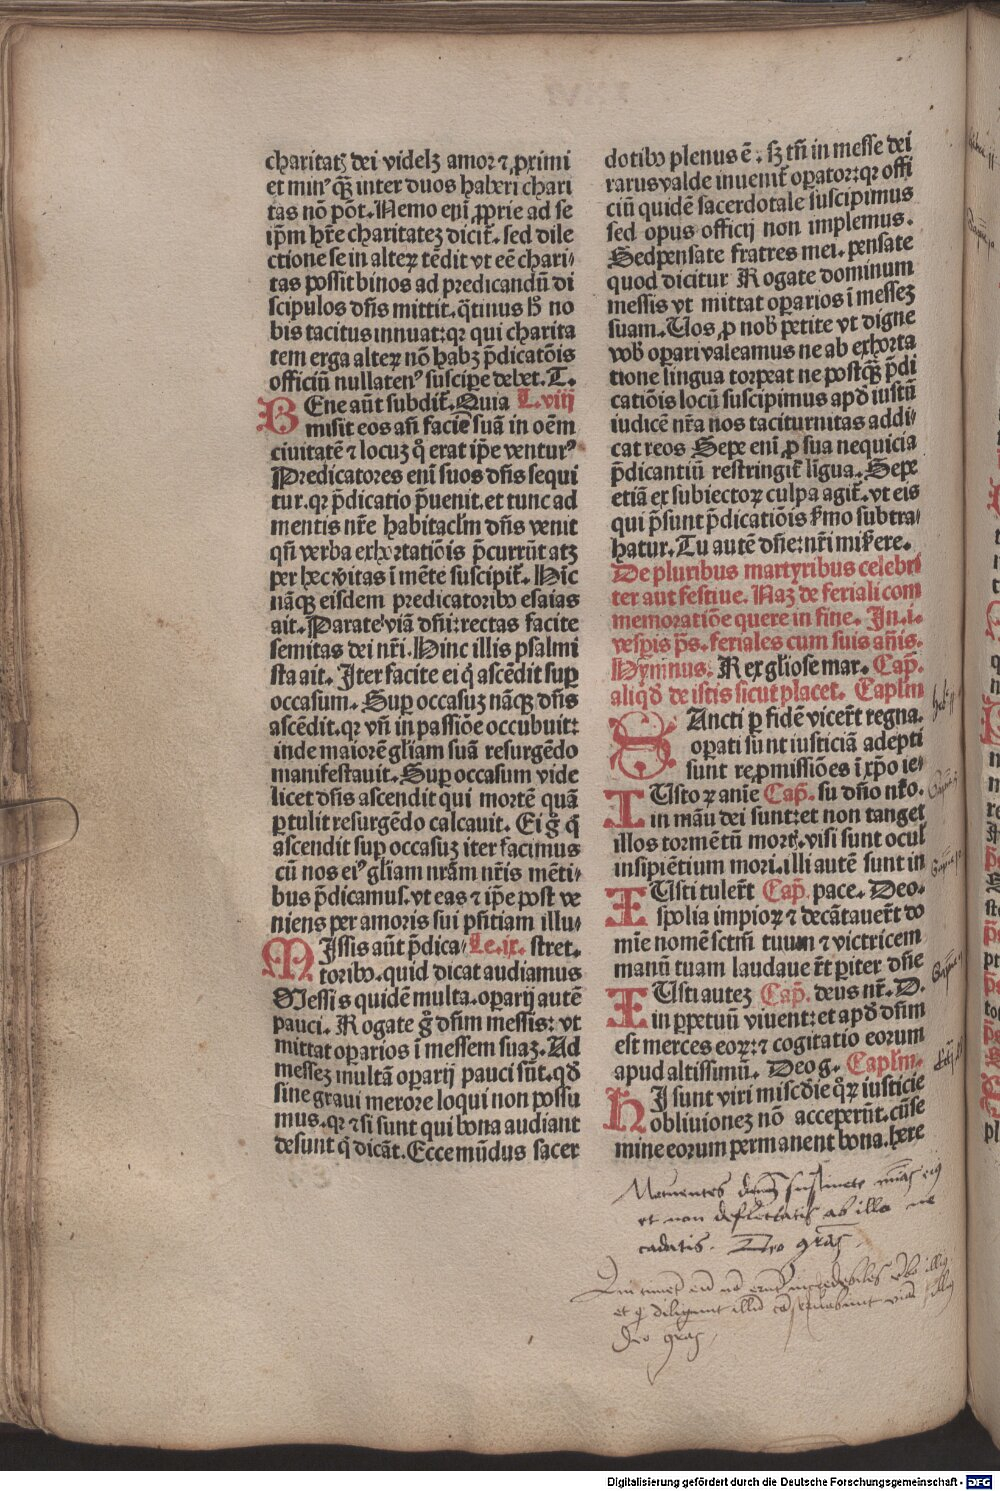 charitatꝫ dei videlꝫ amor ⁊ ꝓximi
et min⁹ q̄ꝫ inter duos haberi chari
tas nō pōt. Nemo enī ꝓprie ad se
ip̄m hr̄e charitateꝫ dicit̄. sed dile
ctione se in alteꝝ tēdit vt eē chari/
tas possit binos ad predicandū di
scipulos dn̄s mittit. q̄tinus h̄ no
bis tacitus innuat: qꝛ qui charita
tem erga alteꝝ nō habꝫ p̄dicatōis
officiū nullaten⁹ suscipe debet. T.
BEne aūt subdit̄. Quia L. viij
misit eos añ faciē suā in oēm
ciuitatē ⁊ locuꝫ q̊ erat ip̄e ventur⁹
Predicatores enī suos dn̄s sequi
tur. qꝛ p̄dicatio p̄uenit. et tunc ad
mentis nr̄e habitaclm̄ dn̄s venit
qn̄ verba exhortatiōis p̄currūt atꝫ
per hec v̄itas ī mēte suscipit̄. Hīc
nāqꝫ eisdem predicatoribꝰ esaias
ait. Parate viā dn̄i: rectas facite
semitas dei nr̄i. Hinc illis psalmi
sta ait. Iter facite ei q̇ ascēdit sup̲
occasum. Sup̲ occasuꝫ nāqꝫ dn̄s
ascēdit. qꝛ vn̄ in passiōe occubuit:
inde maiorē gl̄iam suā resurgēdo
manifestauit. Sup̲ occasum vide
licet dn̄s ascendit qui mortē quā
ꝑtulit resurgēdo calcauit. Ei g̊ q̇
ascendit sup̲ occasuꝫ iter facimus
cū nos ei⁹ gl̄iam nr̄am nr̄is mēti/
bus p̄dicamus. vt eas ⁊ ip̄e post ve
niens per amoris sui p̄ntiam illu/
MIssis aūt p̄dica/ Le. ix. stret.
toribꝰ. quid dicat audiamus
Messis quidē multa. oꝑarij autē
pauci. Rogate g̊ dn̄m messis: vt
mittat oꝑarios ī messem suaꝫ. Ad
messeꝫ multā oꝑarij pauci sūt. qd̄
sine graui merore loqui non possu
mus. qꝛ ⁊si sunt qui bona audiant
desunt q̇ dicāt. Ecce mūdus sacer
dotibꝰ plenus ē. sꝫ tn̄ in messe dei
rarus valde inuenit̄ oꝑator: qꝛ offi
ciū quidē sacerdotale suscipimus
sed opus officij non implemus.
Sed pensate fratres mei. pensate
quod dicitur Rogate dominum
messis vt mittat oꝑarios ī messeꝫ
suam. Uos ꝓ nob̄ petite vt digne
vob̄ oꝑari valeamus ne ab exhorta
tione lingua torpeat ne postq̄ꝫ p̄di
catiōis locū suscipimus apd̄ iustū
iudicē nr̄a nos taciturnitas addi/
cat reos Sepe enī ꝓ sua nequicia
p̄dicantiū restringit̄ līgua. Sepe
etiā ex subiectoꝝ culpa agit̄. vt eis
qui p̄sunt p̄dicatiōis s̄mo subtra/
hatur. Tu autē dn̄e: nr̄i mis̄ere.
De pluribus martyribus celebri
ter aut festiue. Naꝫ de feriali com
memoratiōe quere in fine. In. i.
vesꝑis p̄s. feriales cum suis an̄is.
Hymnus. Rex gl̄iose mar. Cap̄.
aliqd̄ de istis sicut placet. Cap̄lm
SAncti ꝑ fidē vicer̄t regna.
oꝑati sunt iusticiā adepti
sunt reꝓmissiōes ī xp̄o ie/
IUstoꝝ anīe Cap̄. su dn̄o nr̄o.
in māu dei sunt: et non tanget
illos tormētū mortꝭ. visi sunt ocul
insipiētium mori. illi autē sunt in
IUsti tuler̄t Cap̄. pace. Deo.
spolia impioꝝ ⁊ decātauer̄t do
mīe nomē sctm̄ tuum ⁊ victricem
manū tuam laudauer̄t ꝑiter dn̄e
IUsti auteꝫ Cap̄. deus nr̄. D.
in ꝑpetuū viuent: et apd̄ dn̄m
est merces eoꝝ: ⁊ cogitatio eorum
apud altissimū. Deo g. Cap̄lm.
HI sunt viri misc̄die q̊ꝝ iusticie
obliuionez nō acceperūt. cū se
mine eorum permanent bona. here
et non deflectatis ab illo ne
cadatis. Deo gr̄as.
et q̇ diligunt illū cōseruabunt viā illi⁹
Deo gr̄as